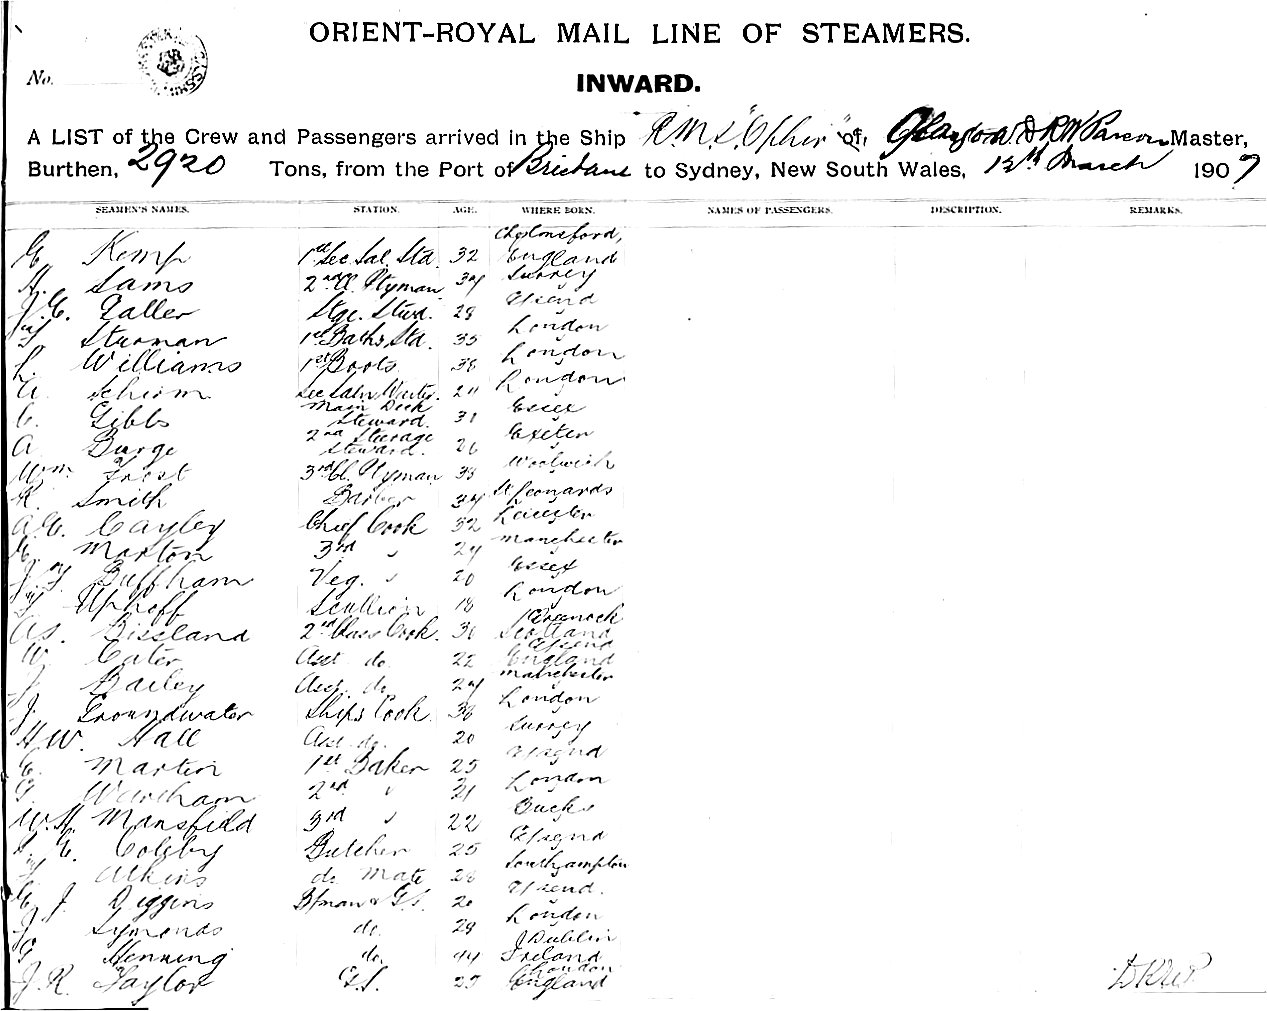 ORIENT-ROYAL MAIL LINE OF STEAMERS.
No.
INWARD.
A LIST of the Crew and Passengers arrived in the Ship "R.M.S. "Ophir" of, Glasgow Master,
Burthen, 2920 Tons, from the Port of Brisbane to Sydney, New South Wales, 12th March 1907
SEAMEN'S NAMES. STATION. AGE. WHERE BORN. NAMES OF PASSENGERS. DESCRIPTION. REMARKS.
Chelmsford,
E. Kemp 1st Sec Sal. Std. 32 England
H. Sams 2nd Cl. Ptyman 34 Surrey
J. E. Zaller Stge. Stwd. 28 Gravesend
Sturman 1st Baths Std. 35 London
L. Williams 1st Boots 38 London
A. Schirm Sec Saln Waiter. London
C. Gibbs Main Deck Steward. 31 Essex
A. Burge 2nd Steerage Steward. 26 Exeter
Wm Frost 3rd Cl. Ptyman 38 Woolwich
R. Smith Barber 34 St Leonards
A.E. Cayley Chief Cook 32 Leicester
E. Marton 3rd " 24 Manchester
Buffham Veg. " 20 Essex
Uphoff Scullion 18 London
Greenock
A.S. Bissland 2nd Class Cook. 30 Scotland
W. Cater Asst do. 22 England
J. Bailey Asst. do 24 Manchester
J. Groundwater Ships Cook. 38 London
H.W. Hall Asst do. 20 Surrey
E. Martin 1st Baker 25
G. Wareham 2nd " 21 London
W.H. Mansfield 3rd " 22 Bucks
Colsby Butcher 25
Atkins do. Mate 28 Southampton
E. J. Diggins 20
J. Symonds do. 29 London
Dublin
G. Henning do. 44 Ireland
London
J.R. Taylor G.S. 27 England